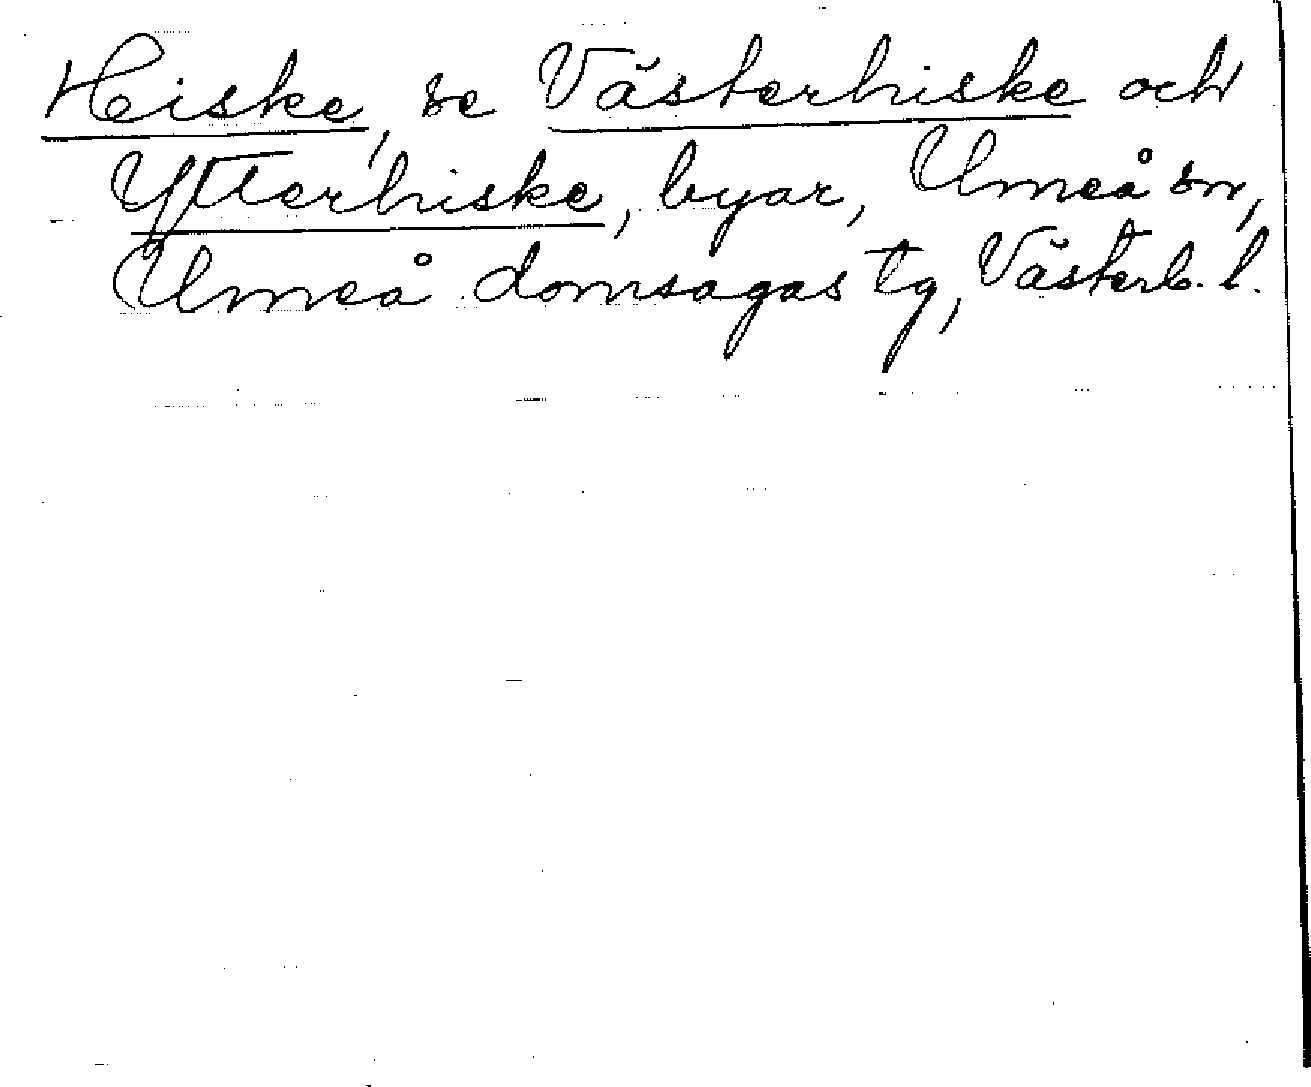 Heiske, se Västerhiske och
Ytterhiske, byar, Umeå sn,
Umeå domsagas tg, Västerb. l.